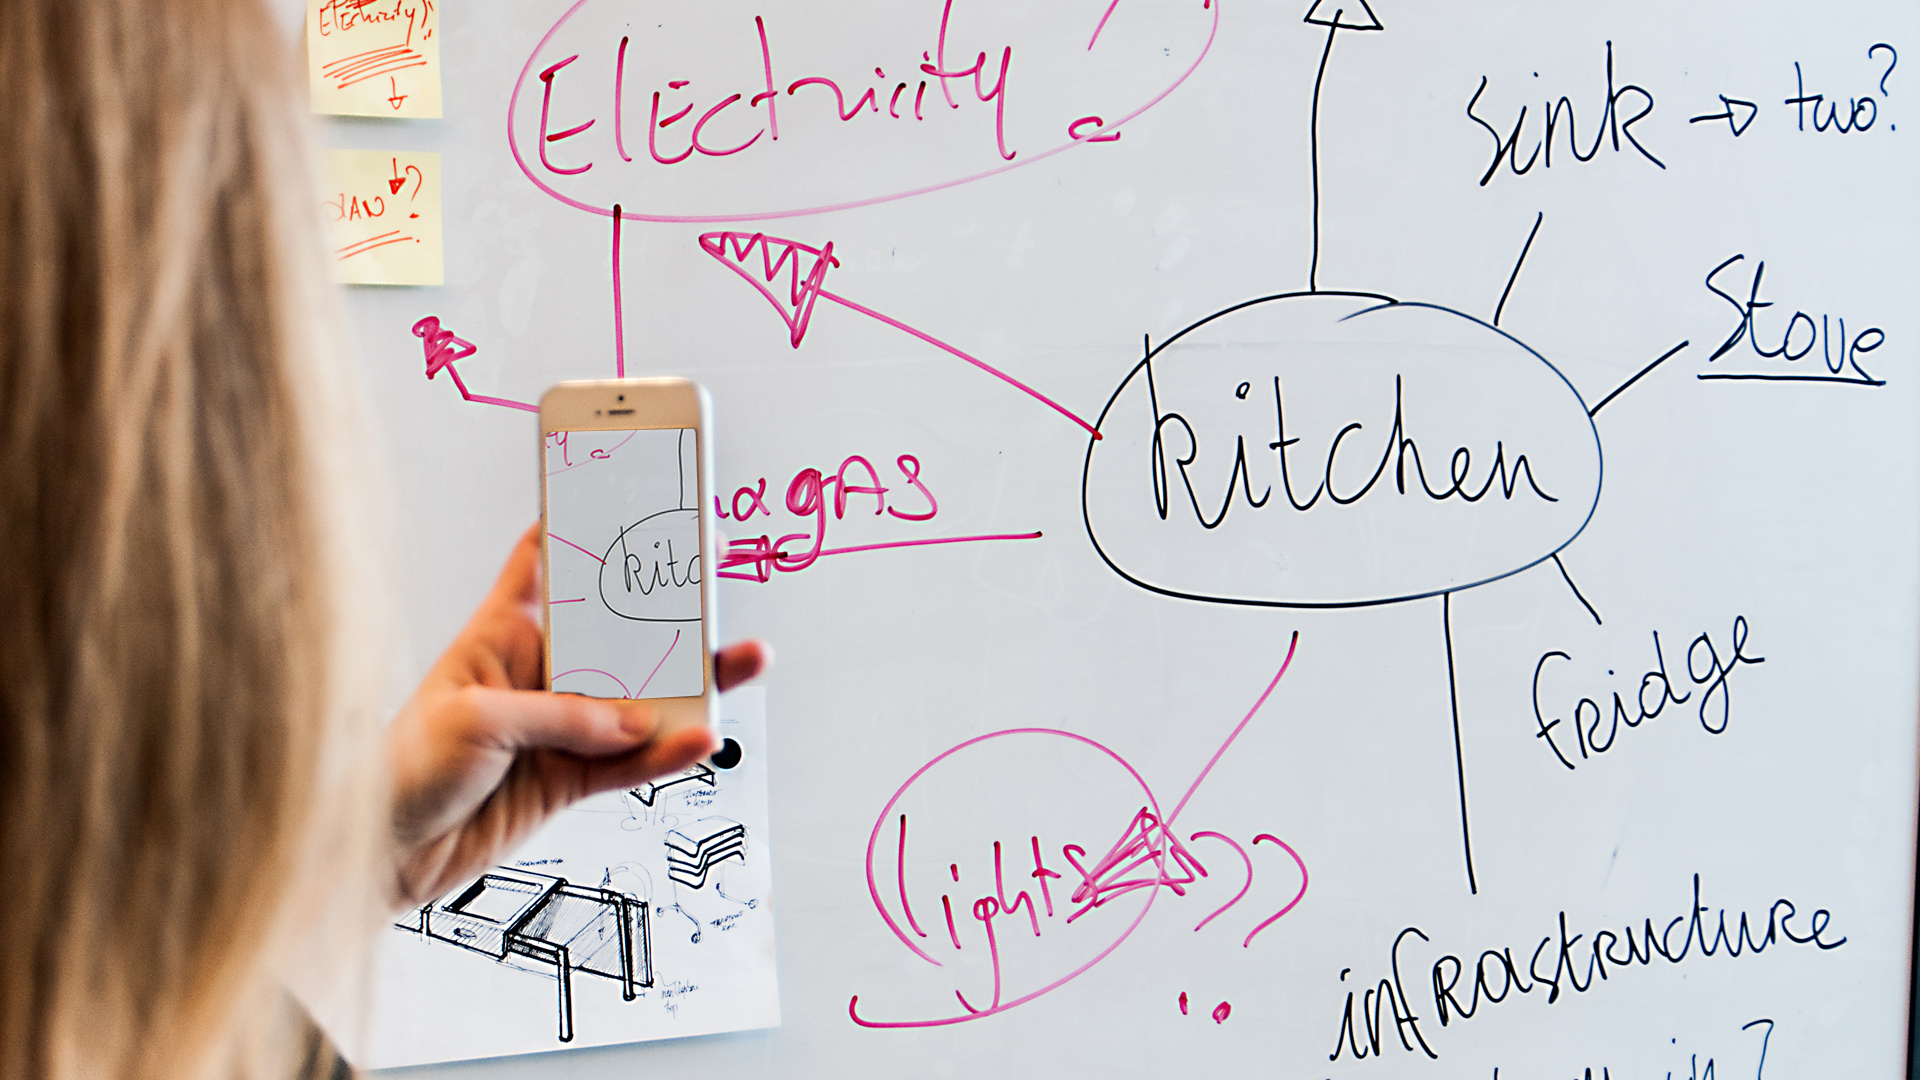 Electricity!
Electricity
sink → two?
Stove
gAS
kitchen
kitc
fridge
lights
infrastructure